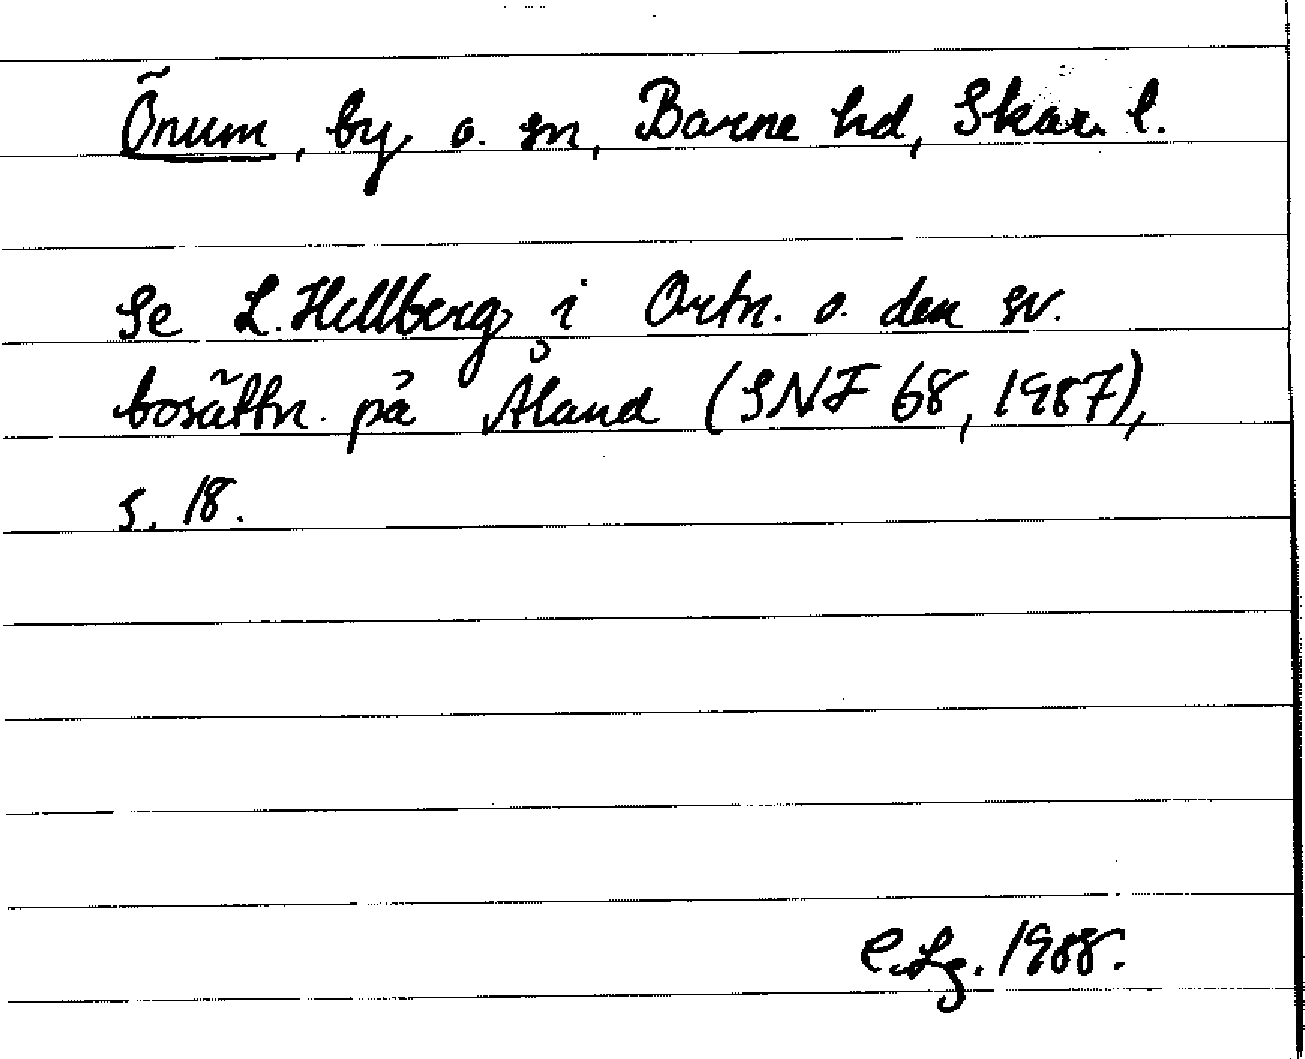 Önum, by o. sn, Barne hd, Skar. l.
Se L. Hellberg i Ortn. o. den sv.
bosättn. på Åland (SNF 68, 1987),
s. 18.
C. Lg. 1988.